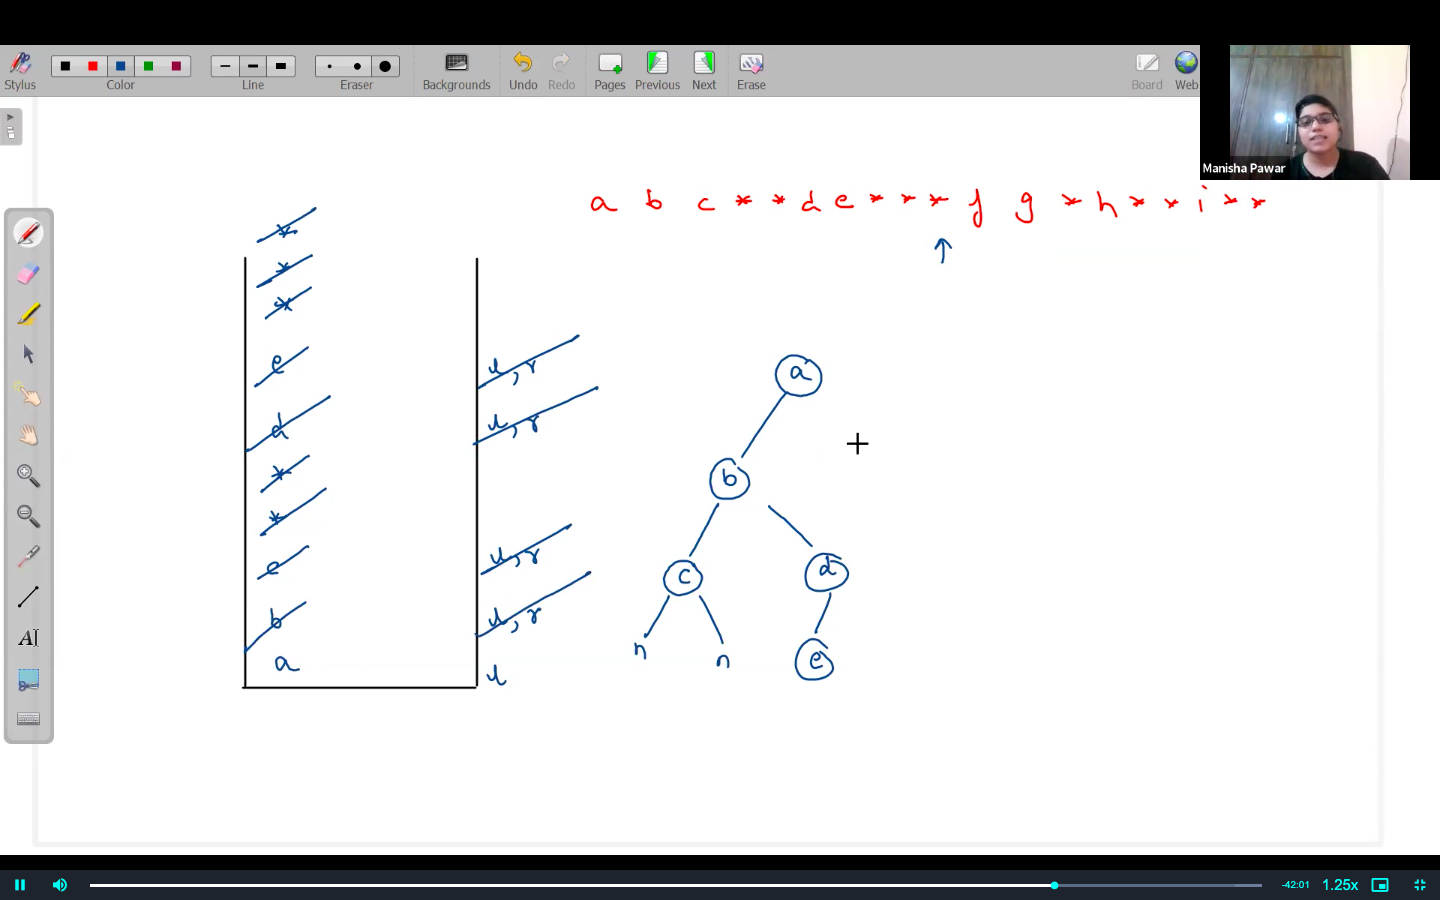 Stylus
Color
Line
Eraser
Backgrounds
Undo
Redo
Pages
Previous
Next
Erase
Board
Web
Manisha Pawar
a b c * * d e * * * f g * h * * i * *
*
*
*
e
l, r
d
l, r
*
*
c
l, r
b
l, r
a
l
a
b
c
d
n
n
e
AI
-42:01
1.25x